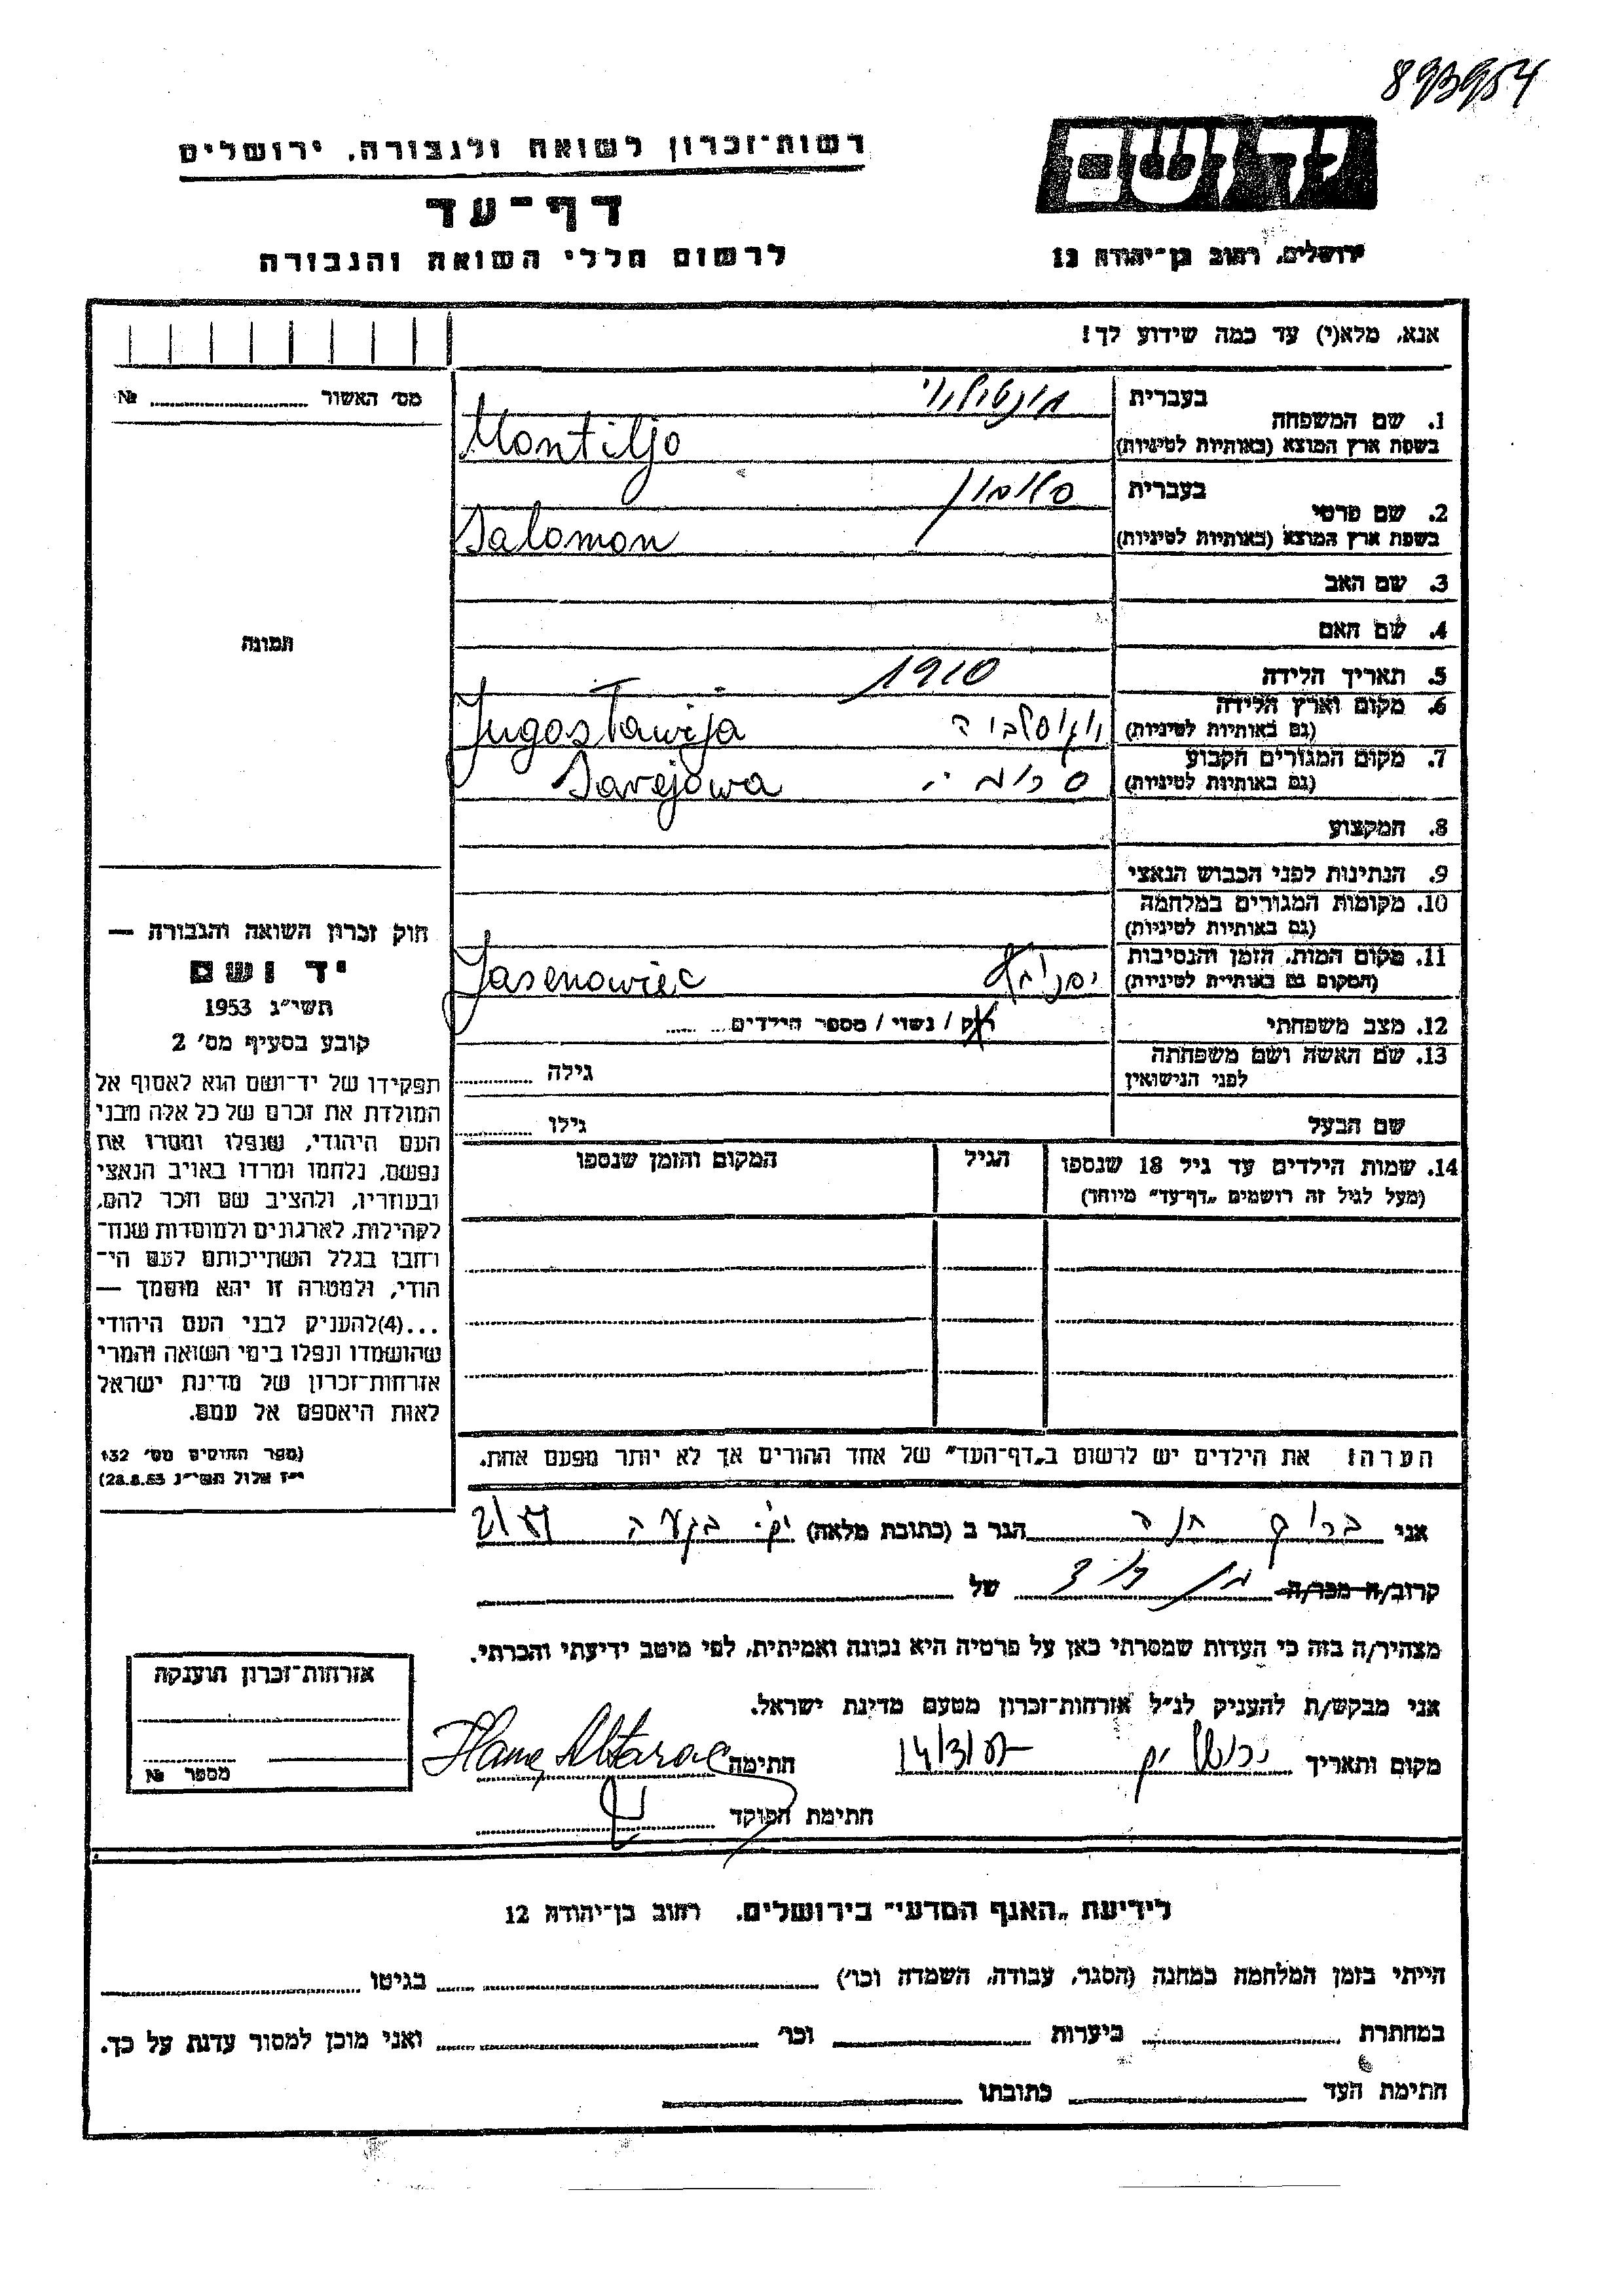 893954
יד ושם
רשות־זכרון לשואה ולגבורה, ירושלים
דף־עד
לרשום חללי השואה והגבורה
ירושלים, רחוב בן־יהודה 12
אנא, מלא(י) עד כמה שידוע לך!
מס׳ האשור № 
1. שם המשפחה
בעברית
בשפת ארץ המוצא (באותיות לטיניות)
Montiljo
2. שם פרטי
בעברית סלומון
בשפת ארץ המוצא (באותיות לטיניות)
Salomon
3. שם האב
4. שם האם
תמונה
5. תאריך הלידה 1910
6. מקום וארץ הלידה
(גם באותיות לטיניות)
יוגוסלביה Jugoslawija
7. מקום המגורים הקבוע
(גם באותיות לטיניות)
Sarejowa
8. המקצוע
9. הנתינות לפני הכבוש הנאצי
10. מקומות המגורים במלחמה
(גם באותיות לטיניות)
11. מקום המות, הזמן והנסיבות
(המקום גם באותיות לטיניות)
Jasenowiec
12. מצב משפחתי רוק / נשוי / מספר הילדים
13. שם האשה ושם משפחתה
לפני הנישואין
גילה
שם הבעל גילו
14. שמות הילדים עד גיל 18 שנספו הגיל המקום והזמן שנספו
(מעל לגיל זה רושמים „דף־עד״ מיוחד)
חוק זכרון השואה והגבורה —
יד ושם
תשי״ג 1953
קובע בסעיף מס׳ 2
תפקידו של יד־ושם הוא לאסוף אל
המולדת את זכרם של כל אלה מבני
העם היהודי, שנפלו ומסרו את
נפשם, נלחמו ומרדו באויב הנאצי
ובעוזריו, ולהציב שם וזכר להם,
לקהילות, לארגונים ולמוסדות שנח־
רחבו בגלל השתייכותם לעם הי־
הודי, ולמטרה זו יהא מוסמך —
...(4)להעניק לבני העם היהודי
שהושמדו ונפלו בימי השואה והמרי
אזרחות־זכרון של מדינת ישראל
לאות היאספם אל עמם.
(ספר החוקים מס׳ 132
י״ז אלול תשי״ג 28.8.53)
הערה! את הילדים יש לרשום ב„דף־העד״ של אחד ההורים אך לא יותר מפעם אחת.
אני חנה הגר ב (כתובת מלאה)
קרוב/ה מכר/ה של
מצהיר/ה בזה כי העדות שמסרתי כאן על פרטיה היא נכונה ואמיתית, לפי מיטב ידיעתי והכרתי.
אני מבקש/ת להעניק לנ״ל אזרחות־זכרון מטעם מדינת ישראל.
מקום ותאריך ירושלים חתימה Hana Altarac
חתימת הפוקד
אזרחות־זכרון תוענקה
מספר №
לידיעת „האגף המדעי״ בירושלים, רחוב בן־יהודה 12
הייתי בזמן המלחמה במחנה (הסגר, עבודה, השמדה וכו׳) בגיטו
במחתרת ביערות וכו׳ ואני מוכן למסור עדות על כך.
חתימת העד כתובתו